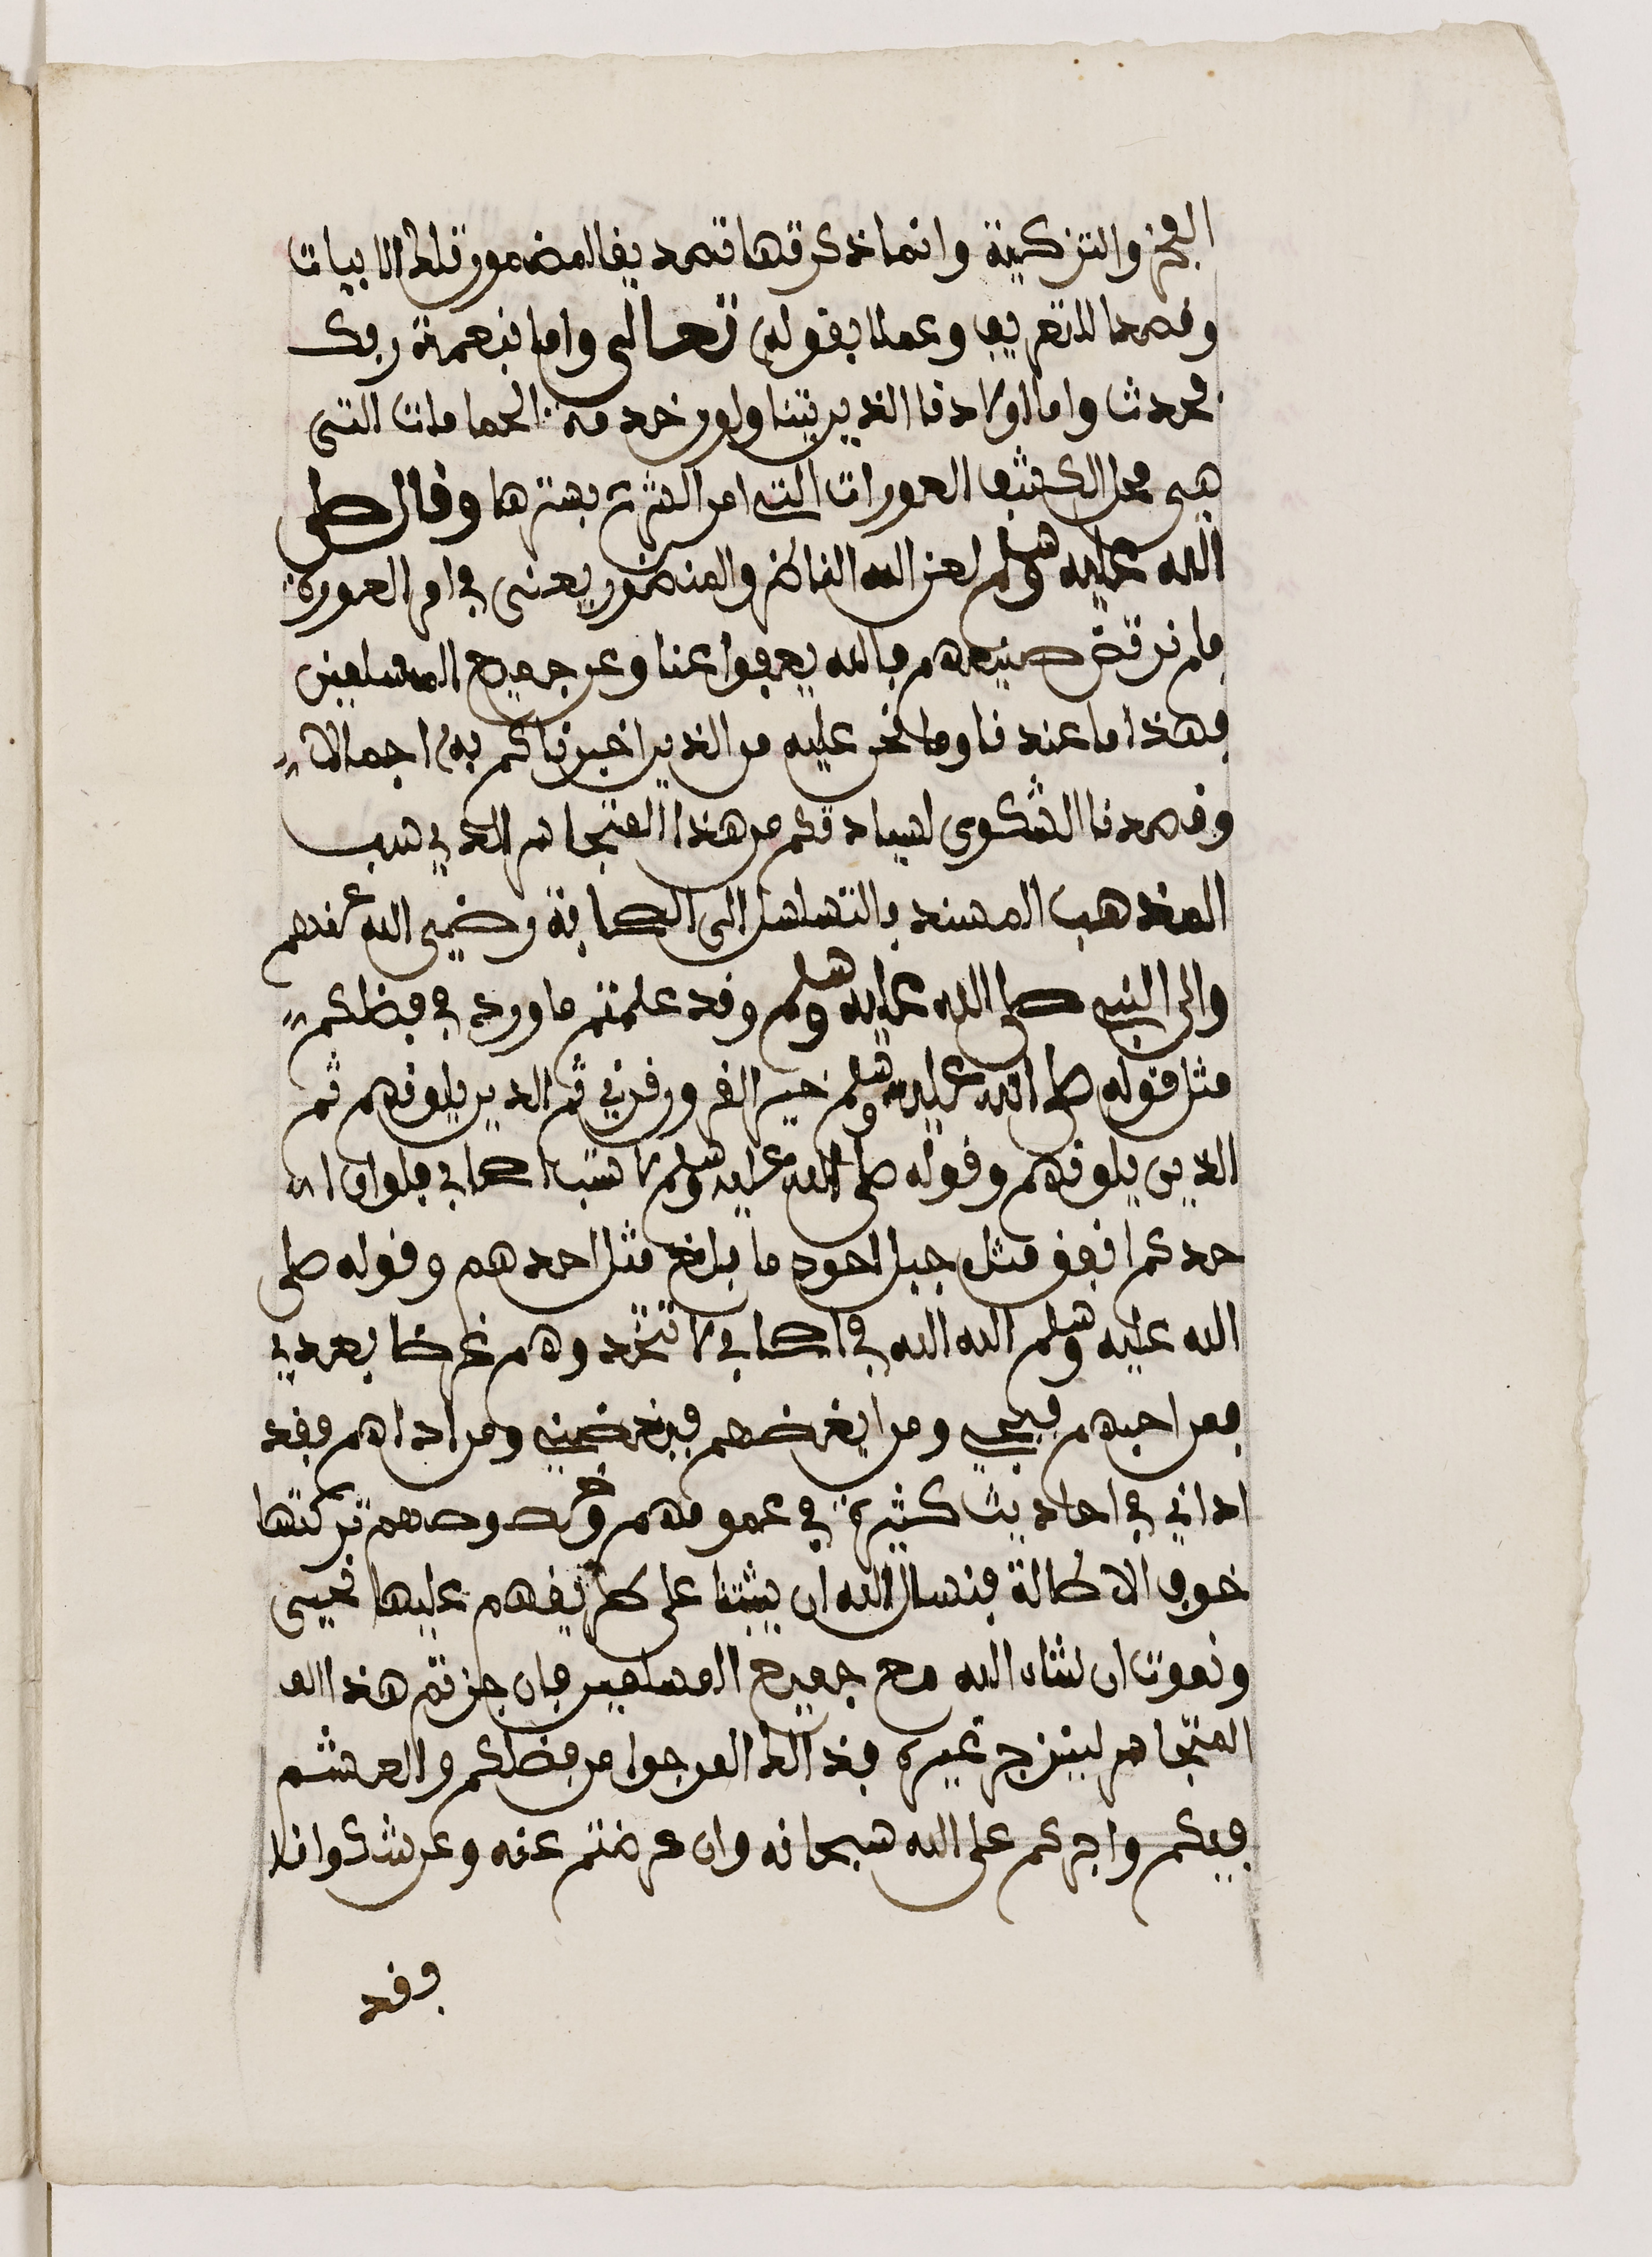 الفخر والتزكية وانما ذكرتها تصديقا لمضمون تلك الابيات
وقصدا للتعريف وعملا بقوله تعالى واما بنعمة ربك
فحدث واما اولادنا الذين يتناولون خدمة الحمامات التي
هي محل الكشف العورات التي امر الشرع بسترها وقال صلى
الله عليه وسلم لعن الله الناظر والمنظور يعني في امر العورة
فلم نرتض صنيعهم فالله يعفوا عنا وعن جميع المسلمين
فهذا ما عندنا وما نحن عليه من الذين اخبرناكم به اجمالا
وقصدنا الشكوى لسيادتكم من هذا المتجاسر الذي سب
المذهب المسند بالتسلسل الى الصحابة رضي الله عنهم
والى النبي صلى الله عليه وسلم وقد علمتم ما ورد في فضلكم
مثل قوله صلى الله عليه وسلم خير القرون قرني ثم الذين يلونهم ثم
الذين يلونهم وقوله صلى الله عليه وسلم لا تسب اصحابي فلو ان ا
حدكم انفق مثل جبل احود ما بلغ مثل احدهم وقوله صلى
الله عليه وسلم الله الله في اصحابي لا تتخذوهم غرضا بعدي
فمن احبهم فبحبي ومن ابغضهم فببغضيني ومن اذاهم فقد
اذاني في احاديث كثيرة في عمومهم وخصوصهم تركتها
خوف الاطالة فنسال الله ان يثبتنا على طريقهم عليها نحيى
ونموت ان شاء الله مع جميع المسلمين فان جزتم هذا الم
المتجاسر لينزجر غيره فذالك المرجوا من فضلكم والعشم
فيكم واجركم على الله سبحانه وان عرضتم عنه وعن شكوانا
فقد